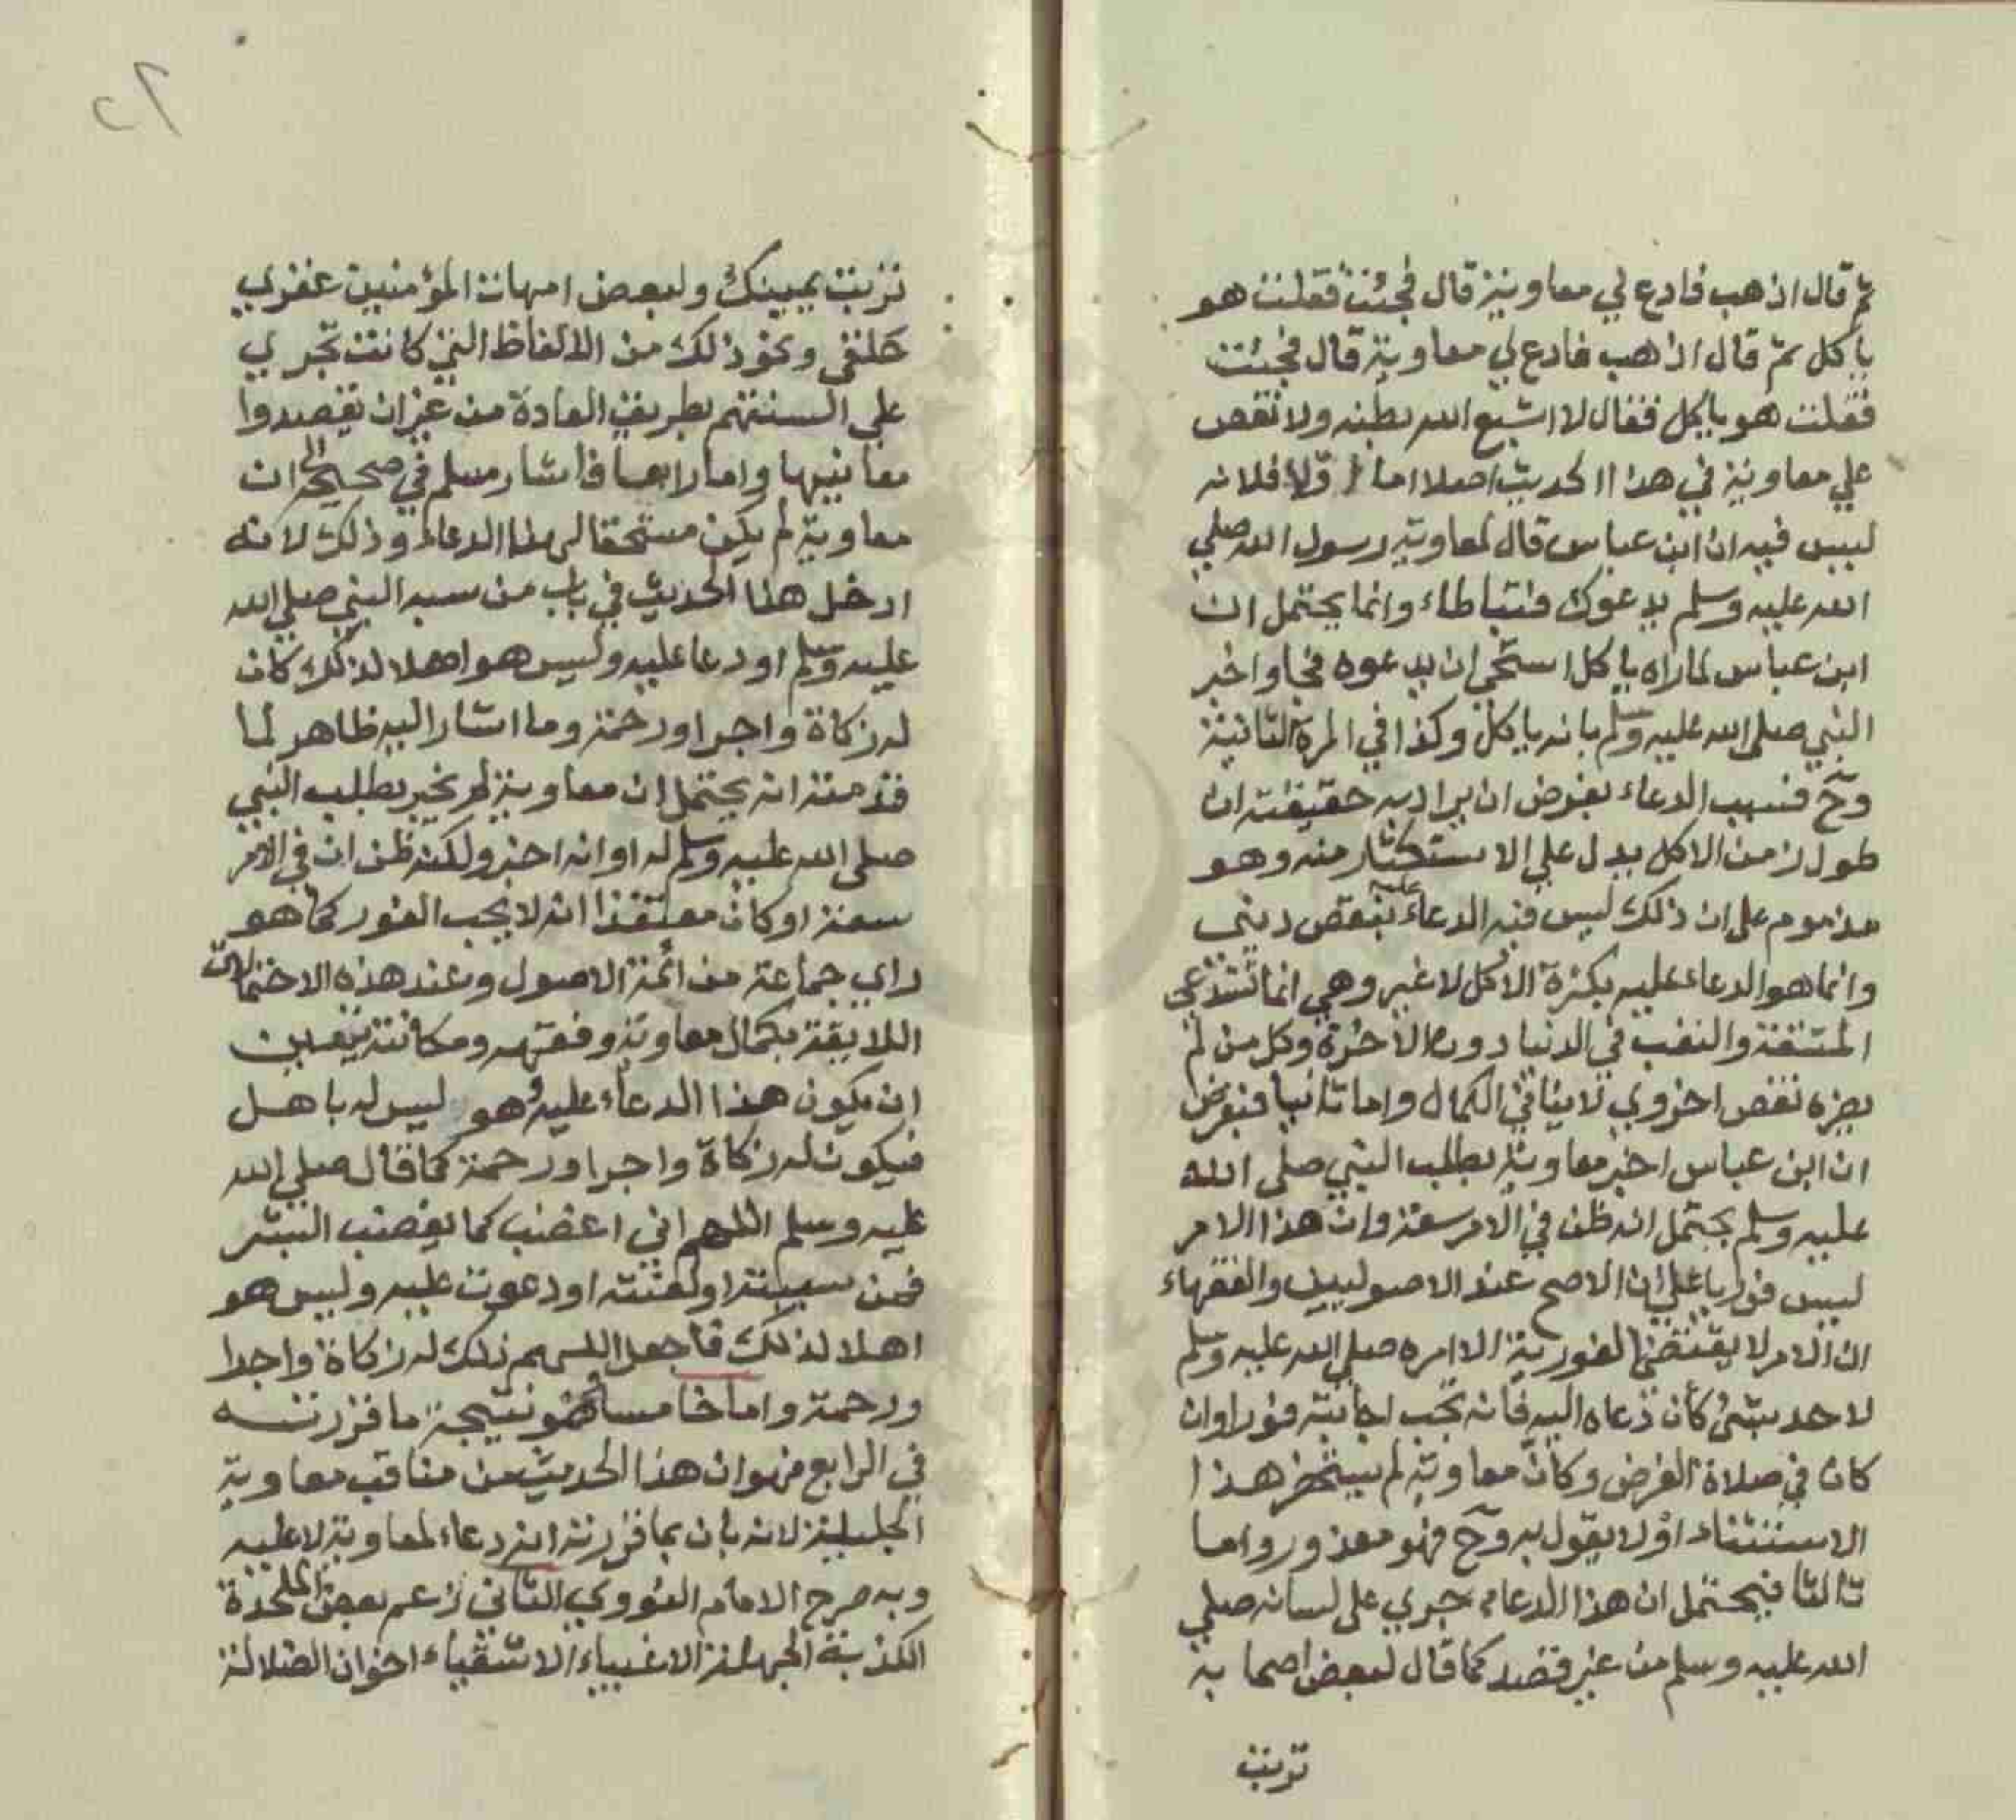 ثم قال اذهب فادع لي معاوية قال فجئت فقلت هو
ياكل ثم قال اذهب فادع لي معاوية قال فجيئت
فقلت هو ياكل فقال لا اشبع الله بطنه ولا نقص
علي معاوية في هذا الحديث اصلا اما اولا فلانه
ليس فيه ان ابن عباس قال لمعاوية رسول الله صلي
الله عليه وسلم يدعوك فتباطاء وانما يحتمل ان
ابن عباس لما راه ياكل استحي ان يدعوه فجا واخبر
النبي صلى الله عليه وسلم بانه ياكل وكذا في المرة الثانية
وح فسبب الدعاء بفرض ان يراد به حقيقته ان
طول زمن الاكل يدل علي الاستكثار منه وهو
مذموم على ان ذلك ليس فيه الدعاء عليه بنقص ديني
وانما هو الدعاء عليه بكثرة الاكل لا غير وهي انما تستدعي
المشقة والتعب في الدنيا دون الاخرة وكل من لم
يضره نقص اخروي لا ينافي الكمال واما ثانيا فبفرض
ان ابن عباس اخبر معاوية بطلب النبي صلى الله
عليه وسلم يحتمل انه ظن في الامر سعة وان هذا الامر
ليس فوريا على ان الاصح عند الاصوليين والفقهاء
ان الامر لا يقتضي الفورية الا امره صلي الله عليه وسلم
لاحد بشئ كأن دعاه اليه فانه تجب اجابته فورا وان
كان في صلاة الفرض وكانّ معاوية لم يستحضر هذا
الاستثناء او لا يقول به وح فهو معذور واما
ثالثا فيحتمل ان هذا الدعاء جري على لسانه صلي
الله عليه وسلم من غير قصد كما قال لبعض اصحابه
تربت
٢٦
تربت يمينك ولبعض امهات المؤمنين عقري
حلقي ونحو ذلك من الالفاظ التي كانت تجري
علي السنتهم بطريق العادة من غير ان يقصدوا
معانيها واما رابعا فاشار مسلم في صحيحه الي ان
معاوية لم يكن مستحقا لهذا الدعاء وذلك لانه
ادخل هذا الحديث في باب من سبه النبي صلي الله
عليه وسلم او دعا عليه وليس هو اهلا لذلك كان
له زكاة واجرا ورحمة وما اشار اليه ظاهر لما
قدمته انه يحتمل ان معاوية لم يخبر بطلب النبي
صلى الله عليه وسلم له او انه اخبر ولكنه ظن ان في الامر
سعة او كان معتقدا انه لا يجب الفور كما هو
راي جماعة من ائمة الاصول وعند هذه الاحتمالات
اللايقة بكمال معاوية وفقهه ومكانته يتعين
ان يكون هذا الدعاء عليه وهو ليس له باهل
فيكون له زكاة واجرا ورحمة كما قال صلي الله
عليه وسلم اللهم اني اغضب كما يغضب البشر
فمن سببته او لعنته او دعوت عليه وليس هو
اهلا لذلك فاجعل اللهم ذلك له زكاة واجرا
ورحمة واما خامسا فهو نتيجة ما قررته
في الرابع فهو ان هذا الحديث من مناقب معاوية
الجليلة لانه بان بما قررته انه دعاء لمعاوية لا عليه
وبه صرح الامام النووي الثاني زعم بعض الملحدة
الكذبة الجهلة الاغبياء الاشقياء اخوان الضلالة